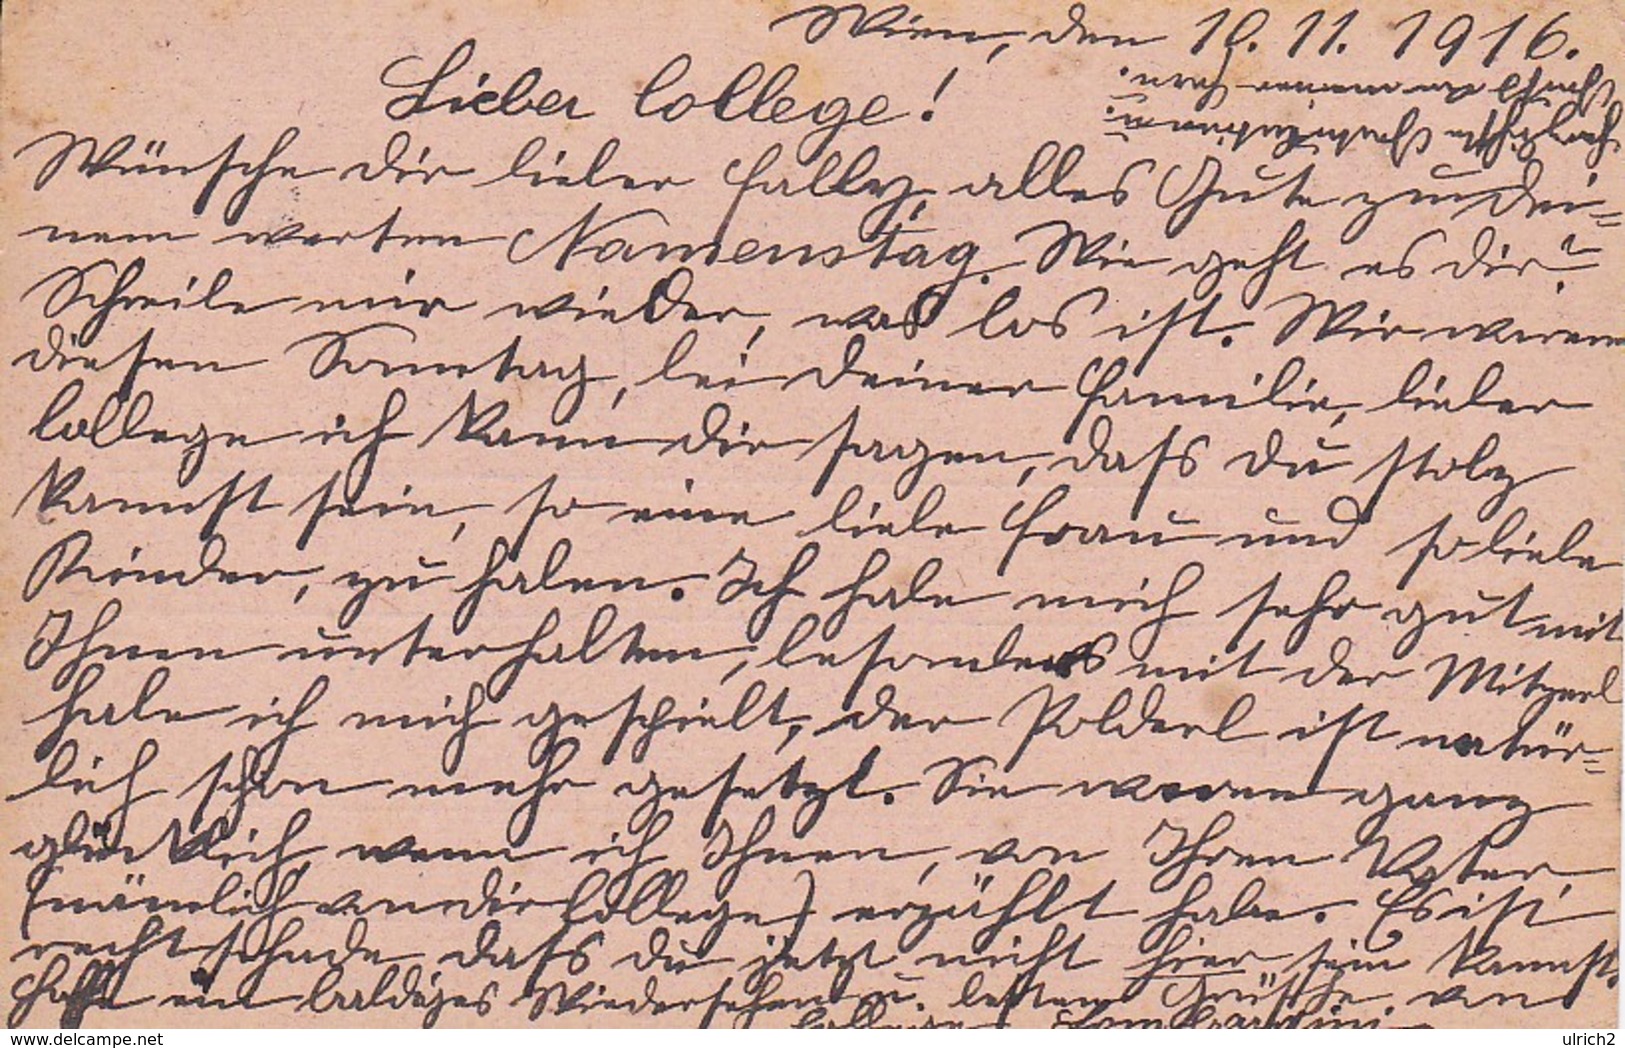 Wien, den 10. 11. 1916.
Lieber College!
Wünsche dir lieber Fally, alles Gute zum dei-
nem werten Namenstag. Wie geht es dir?
Schreibe mir wieder, was los ist. Wir waren
diesen Sonntag, bei deiner Familie, lieber
College ich kann dir sagen, dass du stolz
kannst sein, so eine liebe Frau und so liebe
Kinder, zu haben. Ich habe mich sehr gut mit
Ihnen unterhalten, besonders mit der Mitzerl
habe ich mich gespielt, der Polderl ist natür-
lich schon mehr gesetzt. Sie waren ganz
glücklich, wenn ich Ihnen, von Ihren Vater,
(nämlich von dir College) erzählt habe. Es ist
recht schade, dass du jetzt nicht hier sein kannst.
Hoffe ein baldiges Wiedersehen u. besten Grüsse von
von meiner Frau.
delcampe.net
ulrich2